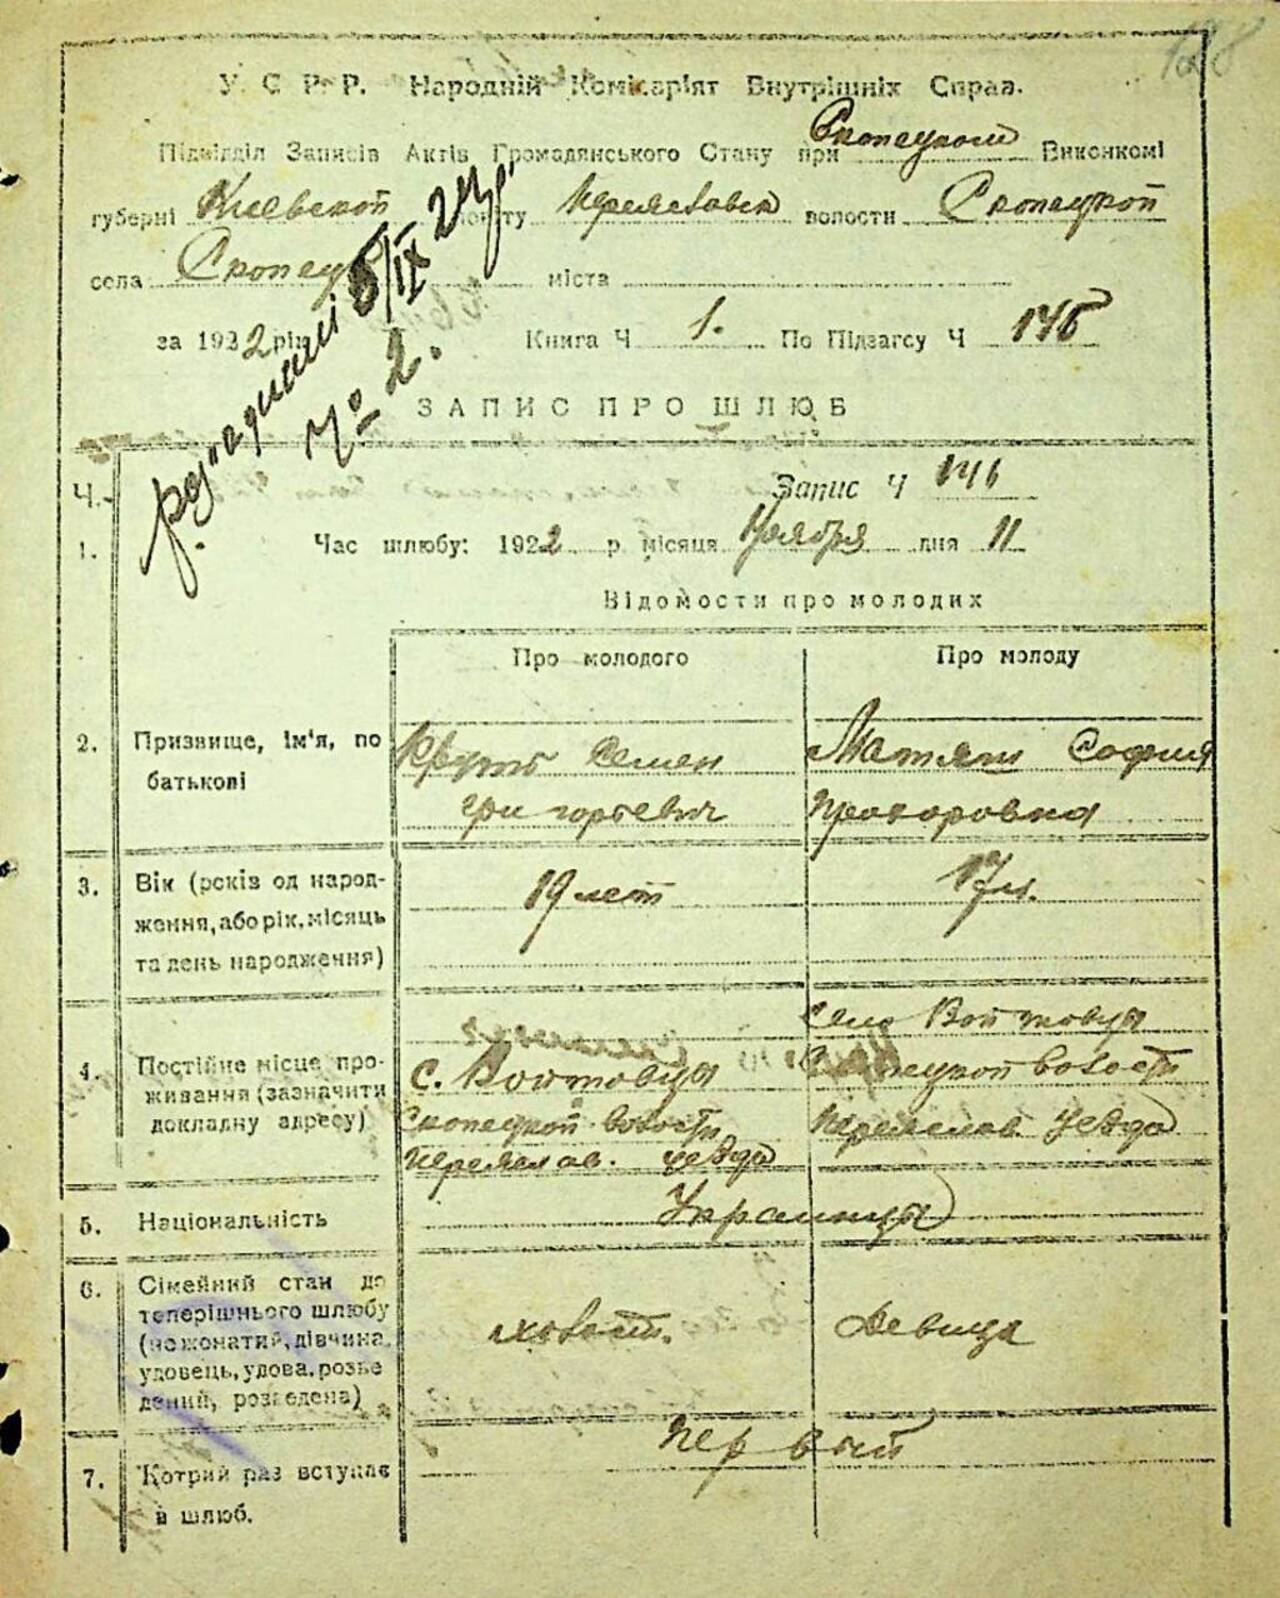 У.С.Р.Р. Народній Комісаріят Внутрішніх Справ.
Підвідділ Записів Актів Громадянського Стану при Скопецком Виконкомі
губерні Киевской повіту Переяславск волости Скопецкой
села Скопец міста
за 1922 рік Книга Ч 1. По Підзагсу Ч 146
5/IX 24 г
№ 2.
ЗАПИС ПРО ШЛЮБ
Ч. Запис Ч 146
1. Час шлюбу: 1922 р місяця Ноября дня 11
Відомости про молодих
Про молодого Про молоду
2. Призвище, ім'я, по батькові
Семен Григорьевич
София Прохоровна
3. Вік (років од народ-
ження, або рік, місяць
та день народження)
19 лет
17 л.
4. Постійне місце про-
живання (зазначити
докладну адресу)
с. Войтовцы
Скопецкой волости
Переяслав. уезда
Село Войтовцы
Скопецкой волости
Переяслав. уезда
5. Національність Украинцы
6. Сімейний стан до
теперішнього шлюбу
(нежонатий, дівчина,
удовець, удова, розве
дений, розведена)
холост.
девица
7. Котрий раз вступає
в шлюб.
первый